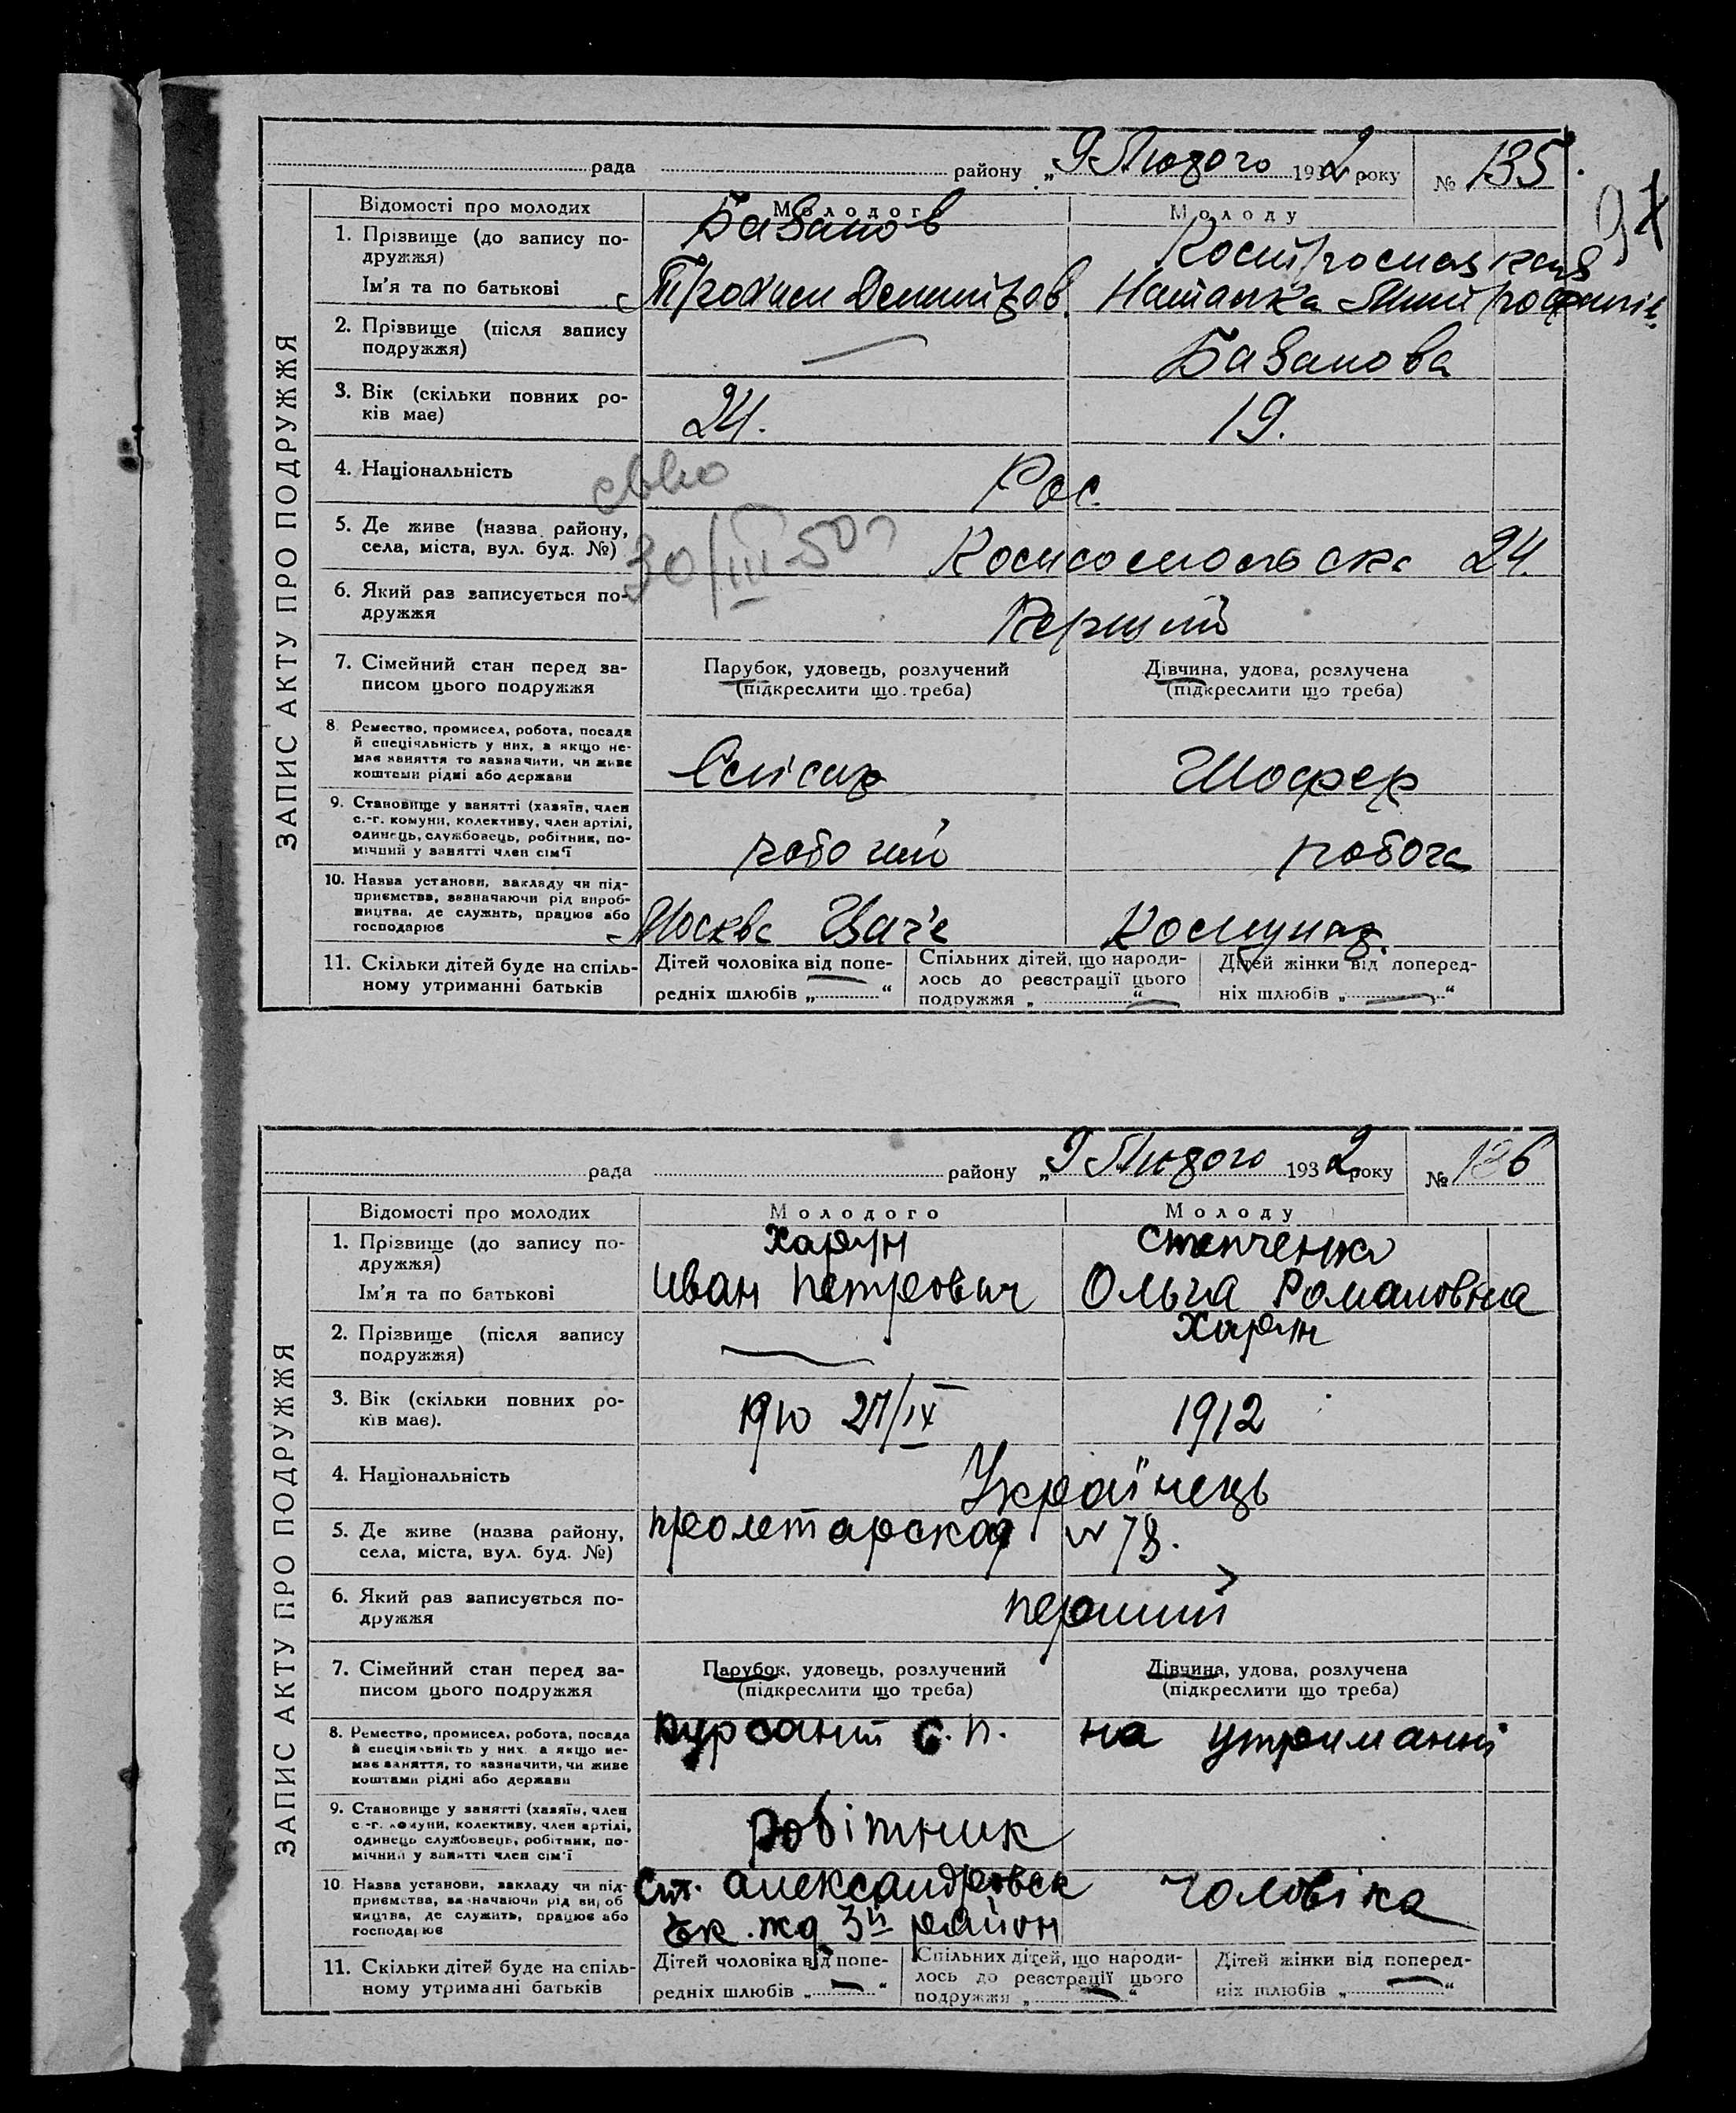 ЗАПИС АКТУ ПРО ПОДРУЖЖЯ
рада району „9 Лютого 1932 року № 135.
Відомості про молодих Молодого Молоду
1. Прізвище (до запису подружжя) Базанов
Ім'я та по батькові Трохим Демитров. Наталка
2. Прізвище (після запису подружжя) — Базанова
3. Вік (скільки повних років має) 24. 19.
4. Національність Рос.
30/III-50
5. Де живе (назва району, села, міста, вул. буд. №) Комсомольска 24.
6. Який раз записується подружжя Перший
7. Сімейний стан перед записом цього подружжя Парубок, удовець, розлучений (підкреслити що треба) Дівчина, удова, розлучена (підкреслити що треба)
8. Ремество, промисел, робота, посада й спеціяльність у них, а якщо немає заняття то зазначити, чи живе коштами рідні або держави Слісар Шофер
9. Становище у занятті (хазяїн, член с.-г. комуни, колективу, член артілі, одинець, службовець, робітник, помічний у занятті член сім'ї робочий робоча
10. Назва установи, закладу чи підприємства, зазначаючи рід виробництва, де служить, працює або господарює Москва Комунар.
11. Скільки дітей буде на спільному утриманні батьків Дітей чоловіка від попередніх шлюбів „—“ Спільних дітей, що народилось до реєстрації цього подружжя „—“ Дітей жінки від попередніх шлюбів „—“
ЗАПИС АКТУ ПРО ПОДРУЖЖЯ
рада району „9 Лютого 1932 року № 136
Відомості про молодих Молодого Молоду
1. Прізвище (до запису подружжя) Харун Степченко
Ім'я та по батькові Иван Петрович Ольга Романовна
2. Прізвище (після запису подружжя) — Харун
3. Вік (скільки повних років має). 1910 27/IX 1912
4. Національність Українець
5. Де живе (назва району, села, міста, вул. буд. №) пролетарская № 78.
6. Який раз записується подружжя перший
7. Сімейний стан перед записом цього подружжя Парубок, удовець, розлучений (підкреслити що треба) Дівчина, удова, розлучена (підкреслити що треба)
8. Ремество, промисел, робота, посада й спеціяльність у них, а якщо немає заняття, то зазначити, чи живе коштами рідні або держави курсант с.п. на утриманні
9. Становище у занятті (хазяїн, член с.-г. комуни, колективу, член артілі, одинець службовець, робітник, помічний у занятті член сім'ї робітник
10. Назва установи, закладу чи підприємства, зазначаючи рід виробництва, де служить, працює або господарює Ст. Александровск Ек. жд 3й район чоловіка
11. Скільки дітей буде на спільному утриманні батьків Дітей чоловіка від попередніх шлюбів „—“ Спільних дітей, що народилось до реєстрації цього подружжя „—“ Дітей жінки від попередніх шлюбів „—“